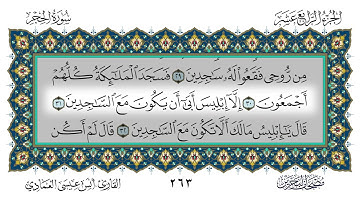 الجزء الرابع عشر
سورة الحجر
مِن رُّوحِي فَقَعُوا۟ لَهُۥ سَٰجِدِينَ ٢٩ فَسَجَدَ ٱلْمَلَٰٓئِكَةُ كُلُّهُمْ
أَجْمَعُونَ ٣٠ إِلَّآ إِبْلِيسَ أَبَىٰٓ أَن يَكُونَ مَعَ ٱلسَّٰجِدِينَ ٣١
قَالَ يَٰٓإِبْلِيسُ مَا لَكَ أَلَّا تَكُونَ مَعَ ٱلسَّٰجِدِينَ ٣٢ قَالَ لَمْ أَكُن
٢٦٣
القارئ
العمادي